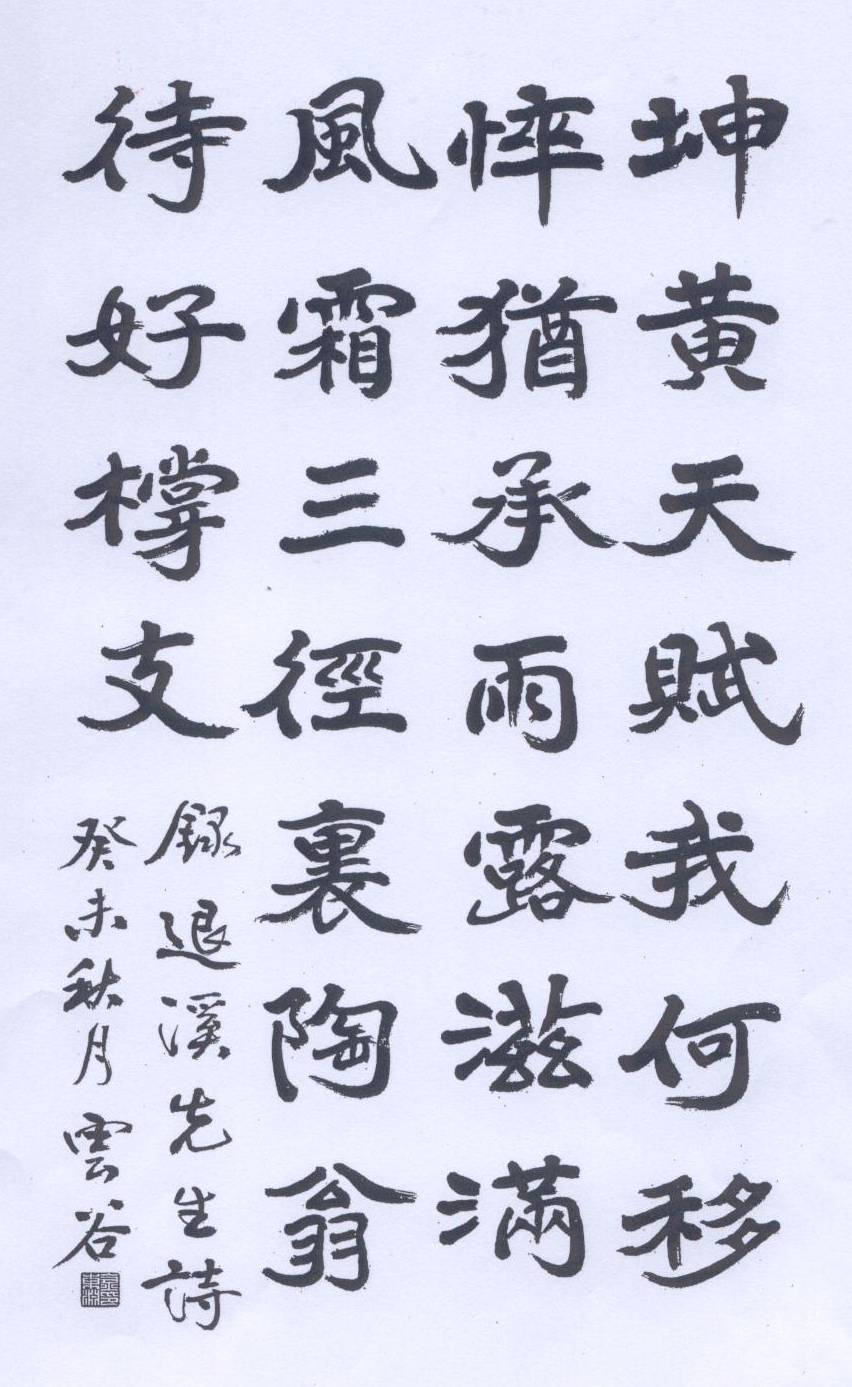 坤黃天賦我何移
悴猶承雨露滋滿
風霜三徑裏陶翁
待好樽支
錄退溪先生詩
癸未秋月 雲谷